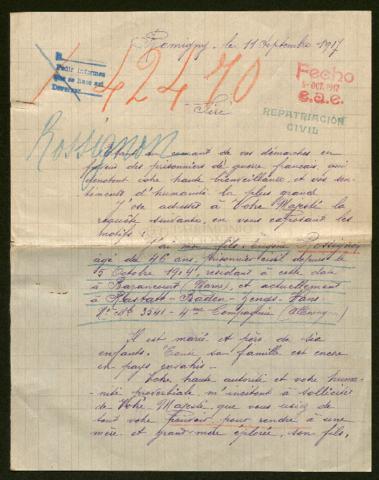 Romigny, le 11 Septembre 1917
R
Pedir informes
que se hace así
Devolver
1 42470
Fecho
5-OCT. 1917
e.a.e.
REPATRIACIÓN
CIVIL
Sire
Rossignon
au courant de vos démarches en
faveur des prisonniers de guerre français, qui
dénotent votre haute bienveillance, et vos sen-
timents d'humanité les plus grands
J'ose adresser à Votre Majesté la
requête suivante, en vous exposant les
motifs :
J'ai mon fils, Eugène Rossignon
âgé de 46 ans, prisonnier civil depuis le
5 Octobre 1914, résidant à cette date
à Bazancourt (Marne), et actuellement
à Rastatt-Baden
Nº 3541 - 4me Compagnie (Allemagne)
Il est marié et père de six
enfants. Toute sa famille est encore
en pays envahis.
Votre haute autorité et votre huma-
nité proverbiale m'incitent à solliciter
de Votre Majesté, que vous usiez de
tout votre pouvoir pour rendre à une
mère et grand-mère éplorée, son fils,